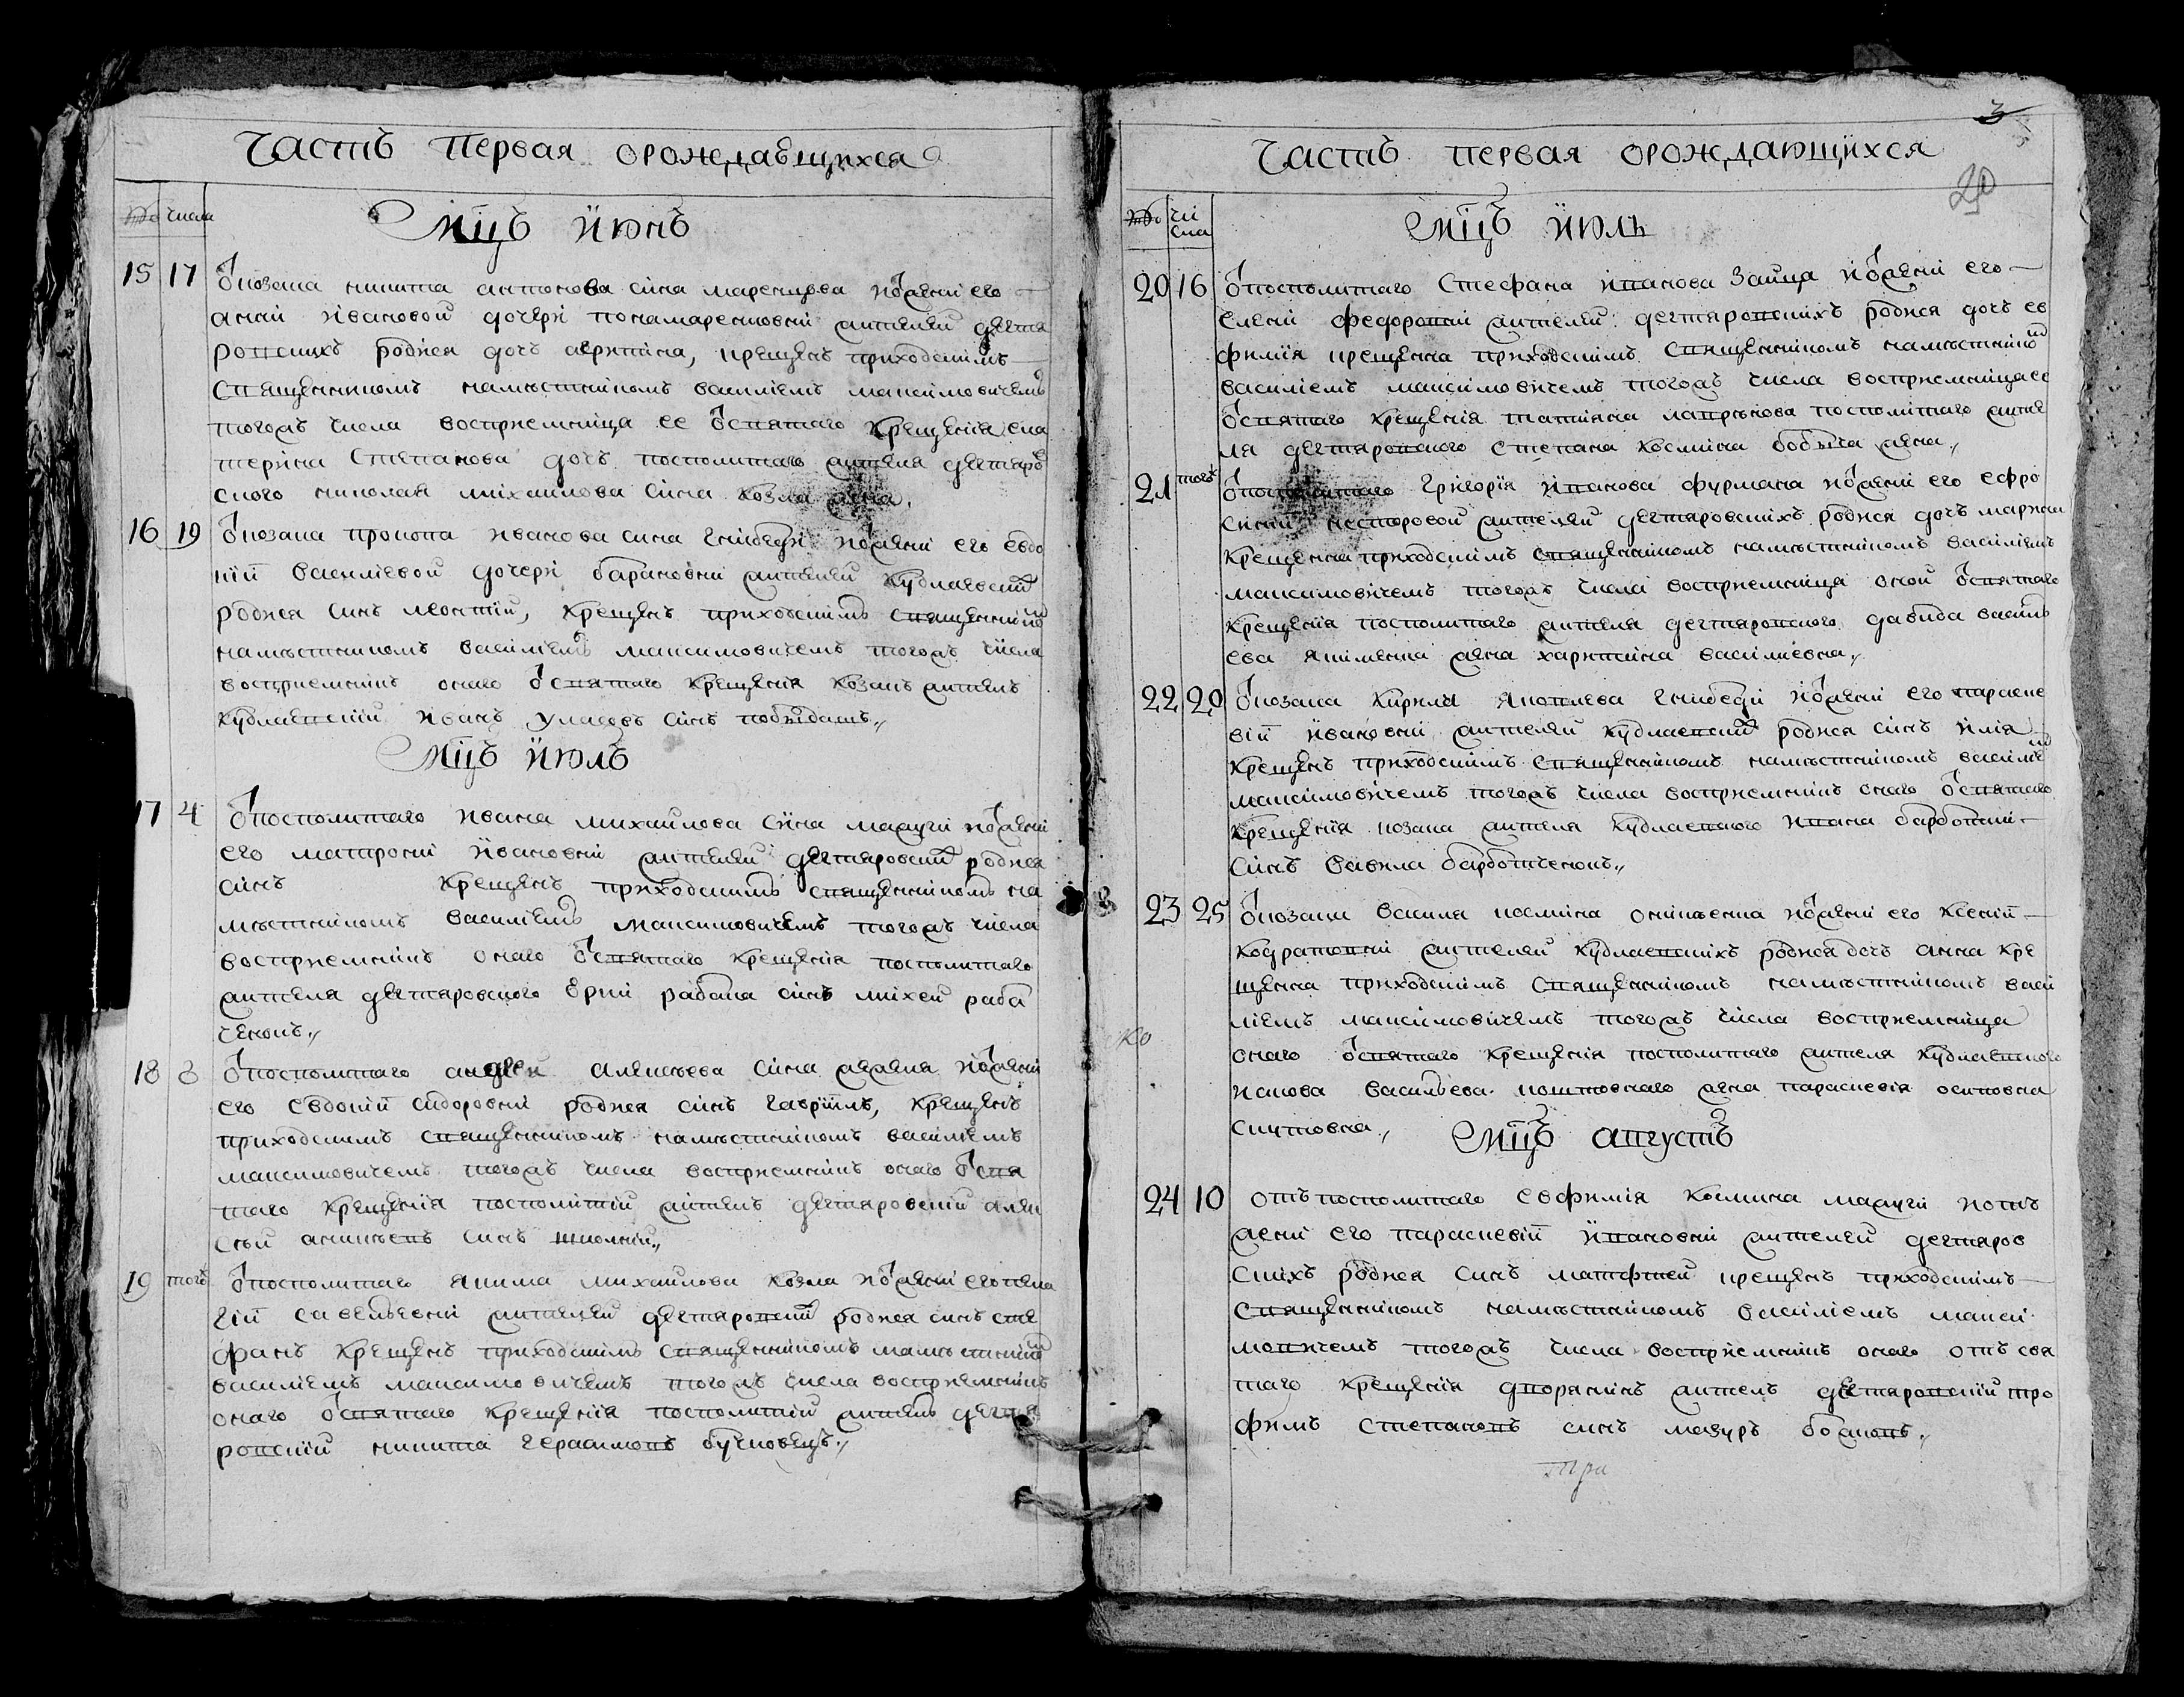 Часть Первая орождаевщихся
числа
Мцъ Июнь
15 17 Ѿ козака никита антонова сина маренцова иѿ жени его
анни Ивановой дочери понамаренковни жителей дегтя
ровскихъ родися дочь акрипина, крещенъ приходскимъ
священникомъ намѣстникомъ василіемъ максимовичемъ
тогожъ числа восприемница ее ѿ святаго крещенія ека
терина Степанова дочь посполитаго жителя дегтяров
ского николая михаилова сина козла жена,
16 19 Ѿ козака прокопа иванова сина гнибеди иѿ жени его евдо
кіи василіевой дочери барановни жителей кудлаевских
родися синъ леонтій, крещенъ приходскимъ священником
намѣстникомъ василіемъ максимовичемъ тогожъ числа
восприемникъ онаго ѿ святаго крещенія козакъ житель
кудлаевскій иванъ уласовъ синъ побѣдашъ,,
Мцъ Июль
17 4 Ѿ посполитаго ивана михаилова сина мажуги иѿ жени
его матрони ивановни жителей дегтяровских родися
синъ крещенъ приходскимъ священникомъ на
мѣстникомъ василіемъ максимовичемъ тогожъ числа
восприемникъ онаго ѿ святаго крещенія посполитаго
жителя дегтяровского юрии рабана синъ михей раба
ченокъ,,
18 8 Ѿ посполитаго андрея алексѣева сина жежеля иѿ жени
его евдокіи сидоровни родися синъ гавріилъ, крещенъ
приходскимъ священникомъ намѣстникомъ василіемъ
максимовичемъ тогожъ числа восприемникъ онаго ѿ свя
таго крещенія посполитій житель дегтяровскій алек
сѣй аникѣевъ синъ
19 тогожъ Ѿ посполитаго якима михаилова козла иѿ жени его пела
гіи савельевни жителей дегтяровских родися синъ сте
фанъ крещенъ приходскимъ священникомъ намѣстником
василіемъ максимовичемъ тогожъ числа восприемникъ
онаго ѿ святаго крещенія посполитій житель дегтя
ровскій никита герасимовъ бучковецъ,,
3
20
Часть первая орождающихся
чи
сла
Мцъ июль
20 16 Ѿ посполитаго Стефана иванова Зайца иѿ жени его
елени федоровни жителей дегтяровскихъ родися дочь ев
фимія крещенна приходскимъ священникомъ намѣстником
василіемъ максимовичемъ тогожъ числа восприемница ее
ѿ святаго крещенія татіяна лавренова посполитаго жите
ля дегтяровского степана космина бобыга жена,,
21 тогожъ Ѿ посполитаго григорія иванова фурмана иѿ жени его ефро
синии несторовой жителей дегтяровскихъ родися дочь марина
крещенна приходскимъ священникомъ намѣстникомъ василіемъ
максимовичемъ тогожъ числа восприемница оной ѿ святаго
крещенія посполитаго жителя дегтяровского давида васил
ева якименка жена харитина василіевна,,
22 20 Ѿ козака кирила яковлева гнибеди иѿ жени его параске
віи ивановни жителей кудлаевских родися синъ илія
крещенъ приходскимъ священникомъ намѣстникомъ василіем
максимовичемъ тогожъ числа восприемникъ онаго ѿ святаго
крещенія козака жителя кудлаевского ивана барботки
синъ вавила барботченокъ,,
23 25 Ѿ козака василя космина онищенка иѿ жени его ксеніи
кодратовни жителей кудлаевскихъ родися дочь анна кре
щенна приходскимъ священникомъ намѣстникомъ васи
ліемъ максимовичемъ тогожъ числа восприемница
онаго ѿ святаго крещенія посполитаго жителя кудлаевского
якова васильева коштовнаго жена параскевія осиповна
скутовна,,
Мцъ августъ
24 10 отъ посполитаго евфимія космина мажуги иотъ
жени его параскевіи ивановни жителей дегтяров
скихъ родися синъ матфтей крещенъ приходскимъ
священникомъ намѣстникомъ василіемъ макси
мовичемъ тогожъ числа восприемникъ онаго отъ свя
таго крещенія дворянинъ житель дегтяровскій тро
фимъ степановъ синъ мазуръ божковъ,,